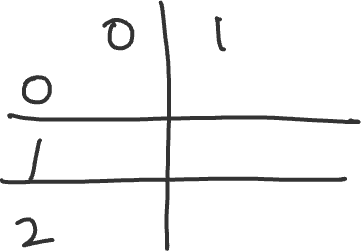 0 1
0
1
2